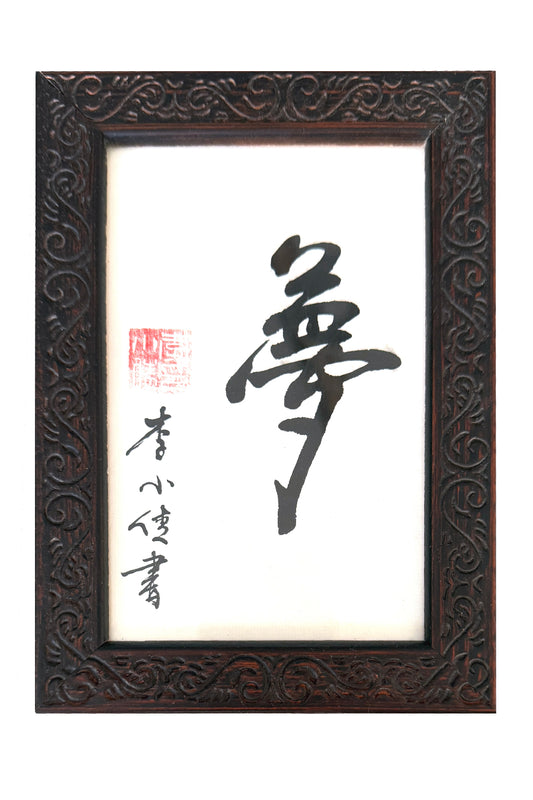 夢
李小倩書